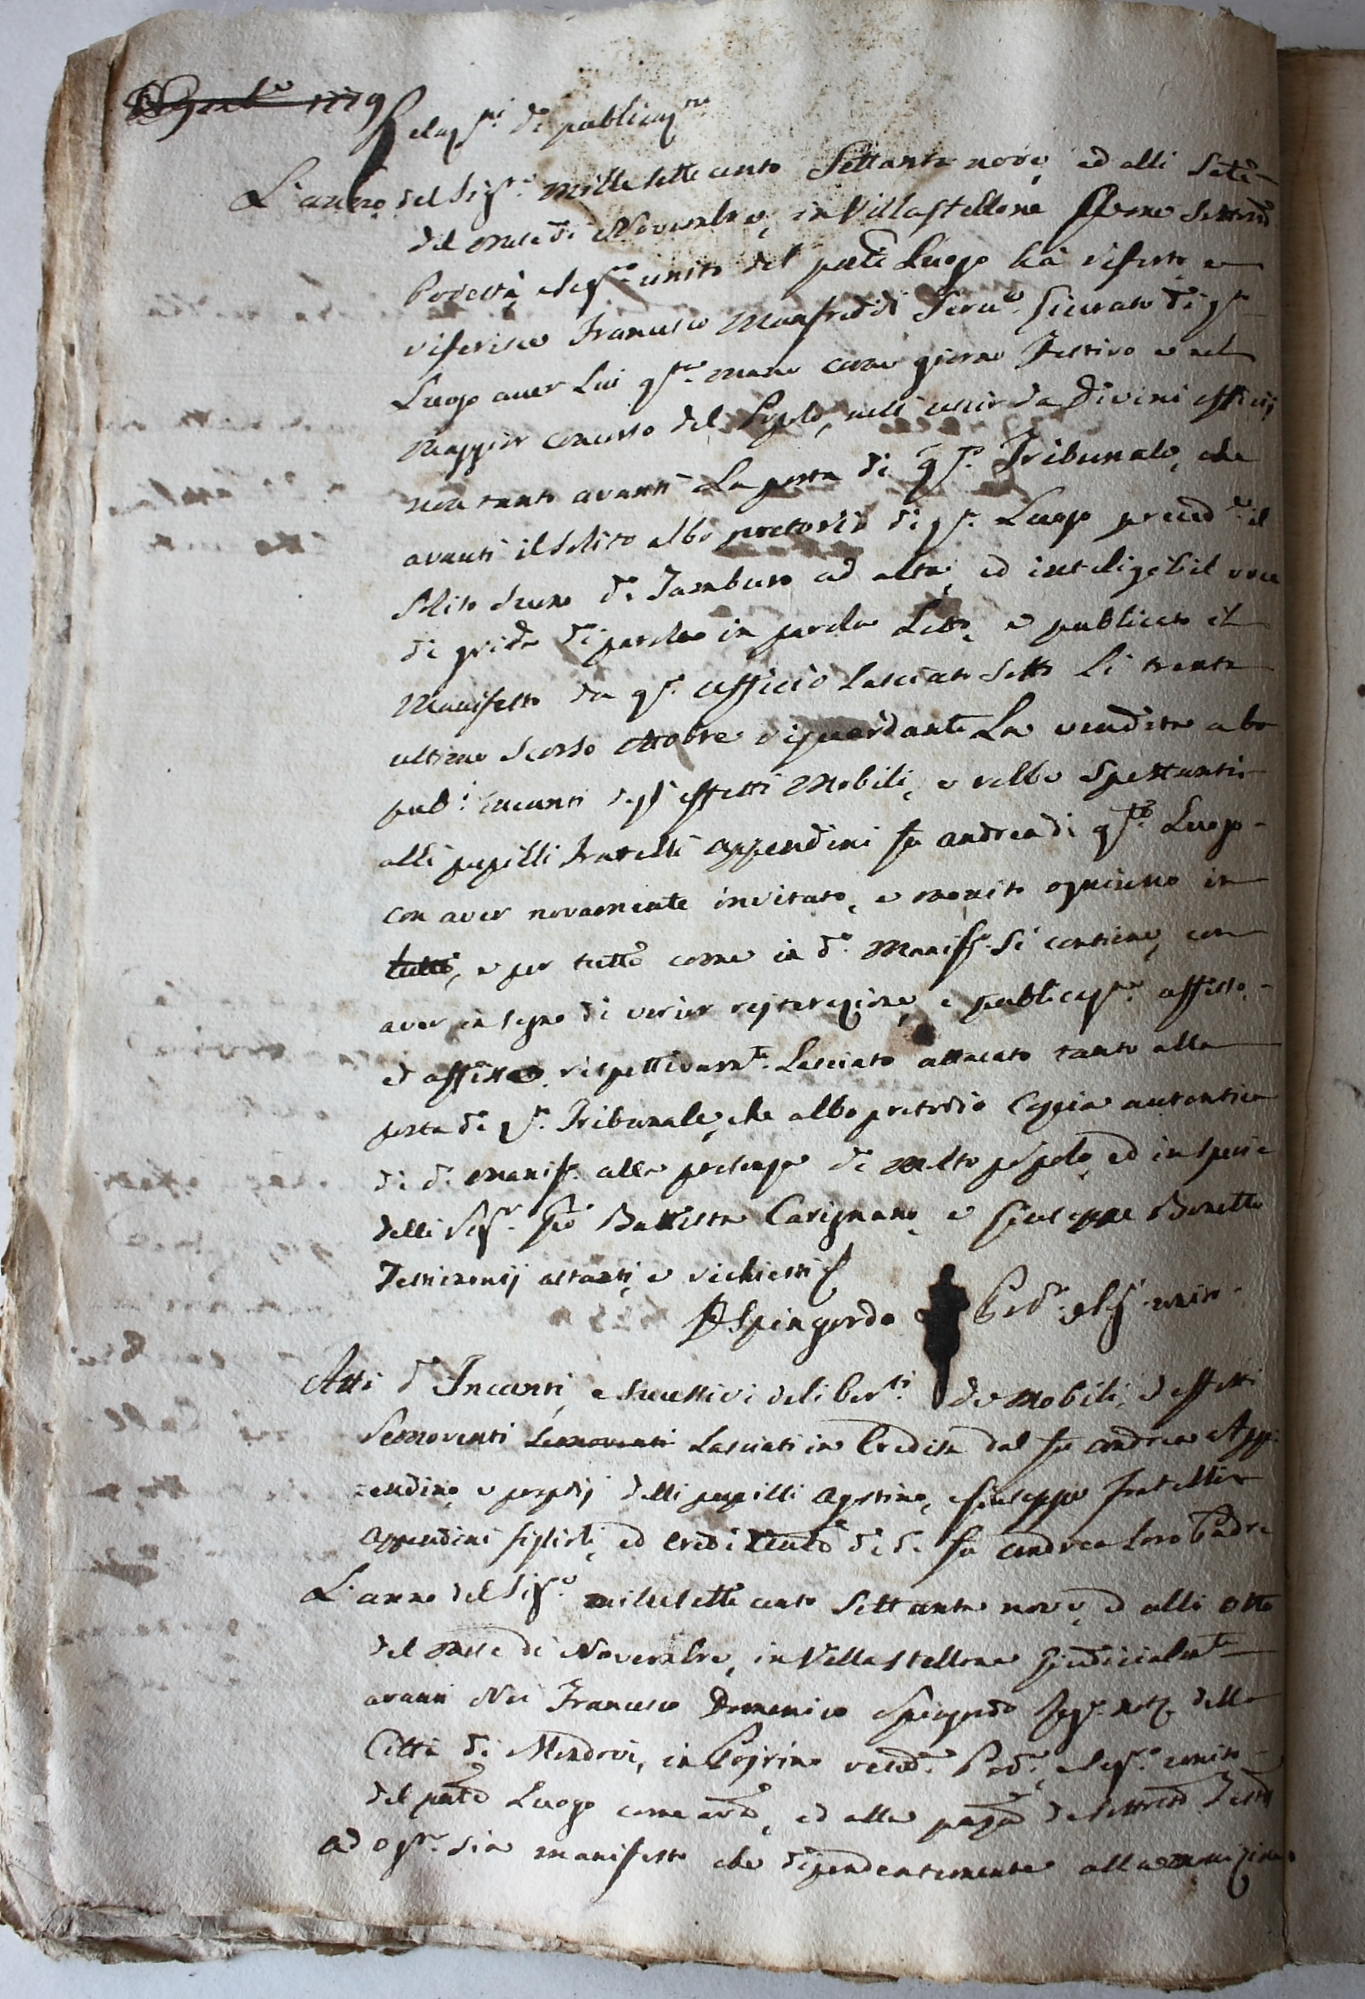 1779 Relaz.ni di publicaz.ne
L'anno del Sig.re mille sette cento settanta nove, ed alli sete
del mese di Novembre, in Villastellone
Podestà, e Seg.ro unito del pnte Luogo hà riferto, e
riferisce Francesco Manfredi Serv.e giurato di q.to
Luogo aver Lui q.ta mane come giorno Festivo e nel
maggior concorso del Popolo, nell'uscir da Divini officij
non tanto avanti La porta di q.to Tribunale, che
avanti il solito albo pretorio di q.to Luogo preced.te il
solito suono di Tamburo ad alta, ed inteligibil voce
di grida di parola in parola Letto, e publicato il
Manifesto da q.to ufficio Lasciato sotto Li trenta
ultimo scorso ottobre riguardante La vendita a bo
pub.i incanti degl'effetti Mobili, e robbe spettanti
alli pupilli fratelli appendini fu andrea di q.to Luogo
con aver novamente invitato, e monito ogniuno in
tutto, e per tutto come in d.o Manif.to si contiene, con
aver in segno di verior rejterazione, e publicaz.ne affisso,
ed affisso rispettivam.te Lasciato attacato tanto alla
porta di q.to Tribunale, che albo pretorio Coppia autentica
di d.o Manif.to alla presenza di molto popolo, ed in specie
delli Sig.ri Gio Battista Carignano, e Giuseppe Bonetto
Testimonij astanti, e richiesti
Spingardo Pod.à e Seg.ro unito
Atti d'Incanti, e successivi deliber.ti de mobili, ed effetti
Semoventi Semoventi Lasciati in Eredità dal fu andrea App-
-endino, e proprij delli pupilli Agostino, e Giuseppe fratelli
appendini figlioli, ed eredi di d.o fu andrea Loro Padre
L'anno del Sig.re mille sette cento settanta nove, ed alli otto
del mese di Novembre, in Villastellone giudicialm.te
avanti Noi Francesco Domenico Spingardo Reg.o not.o della
Città di Mondovi, in Poirino resid.te Pod.à, e Seg.ro unito
del pnte Luogo come avti, ed alla pnza de sottotti Testij
Ad og'uno sia manifesto che dipendentemente alla